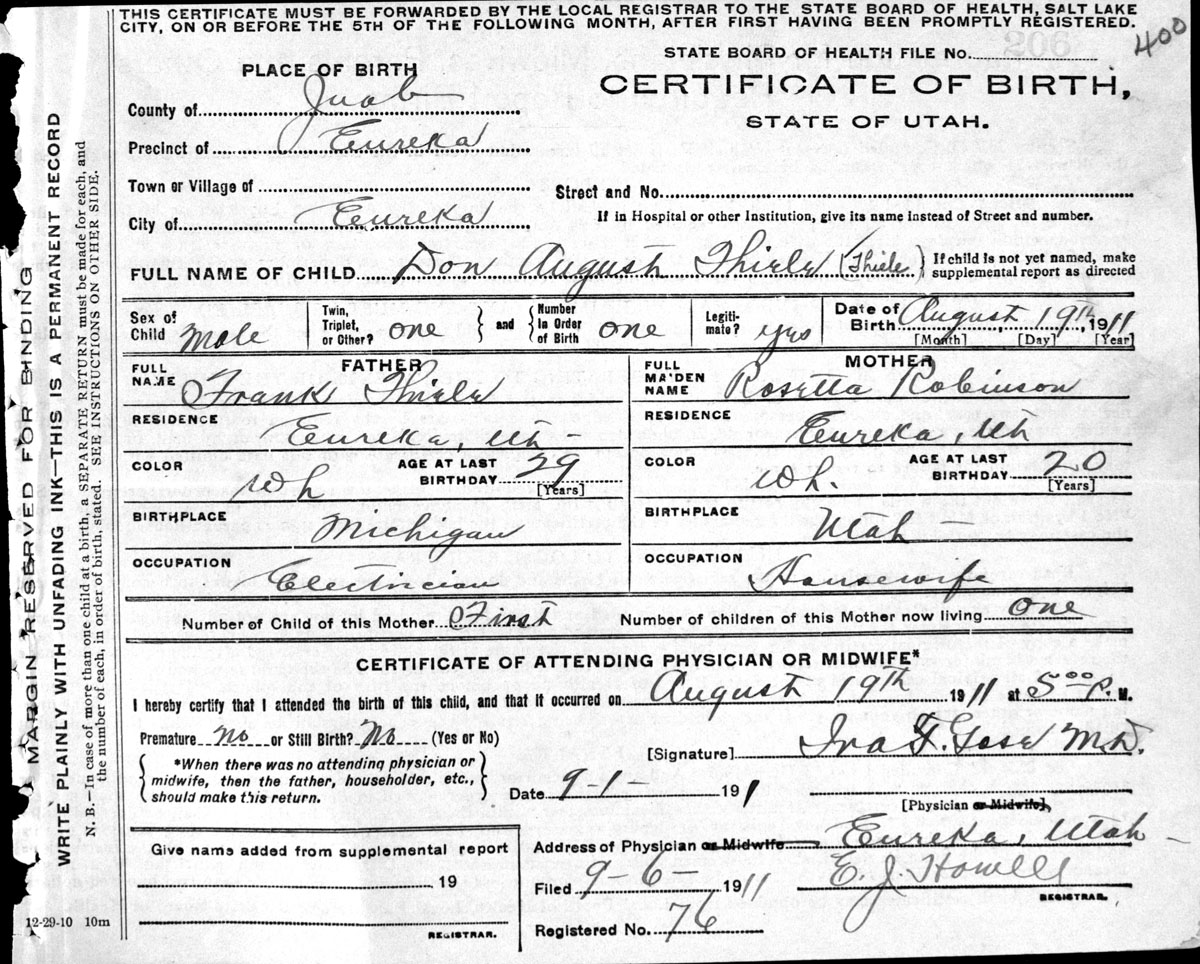 THIS CERTIFICATE MUST BE FORWARDED BY THE LOCAL REGISTRAR TO THE STATE BOARD OF HEALTH, SALT LAKE
CITY, ON OR BEFORE THE 5TH OF THE FOLLOWING MONTH, AFTER FIRST HAVING BEEN PROMPTLY REGISTERED.
400
STATE BOARD OF HEALTH FILE No.
206
PLACE OF BIRTH
CERTIFICATE OF BIRTH,
STATE OF UTAH.
County of Juab
Precinct of Eureka
Town or Village of
Street and No.
City of Eureka
If in Hospital or other Institution, give its name instead of Street and number.
FULL NAME OF CHILD Don August Thiele (Thiele) If child is not yet named, make
supplemental report as directed
Sex of Child Male
Twin, Triplet, or Other? one
and Number in Order of Birth one
Legiti-mate? yes
Date of Birth August 19th, 1911
[Month] [Day] [Year]
FATHER
FULL NAME Frank Thiele
RESIDENCE Eureka, Uth -
COLOR Wh
AGE AT LAST BIRTHDAY 29
[Years]
BIRTHPLACE Michigan
OCCUPATION Electrician
MOTHER
FULL MAIDEN NAME Rosetta Robinson
RESIDENCE Eureka, Ut
COLOR Wh.
AGE AT LAST BIRTHDAY 20
[Years]
BIRTHPLACE Utah
OCCUPATION Housewife
Number of Child of this Mother First Number of children of this Mother now living one
CERTIFICATE OF ATTENDING PHYSICIAN OR MIDWIFE*
I hereby certify that I attended the birth of this child, and that it occurred on August 19th 1911 at 5:00 P. M.
Premature No or Still Birth? No (Yes or No)
[Signature] Ira F. M.D.
*When there was no attending physician or
midwife, then the father, householder, etc.,
should make this return.
Date 9-1- 1911
[Physician or Midwife],
Give name added from supplemental report
19
REGISTRAR.
Address of Physician or Midwife Eureka, Utah -
Filed 9-6- 1911 E. J. Howell
REGISTRAR.
Registered No. 76
12-29-10 10m
MARGIN RESERVED FOR BINDING
WRITE PLAINLY WITH UNFADING INK—THIS IS A PERMANENT RECORD
N. B.—In case of more than one child at a birth, a SEPARATE RETURN must be made for each, and
the number of each, in order of birth, stated. SEE INSTRUCTIONS ON OTHER SIDE.